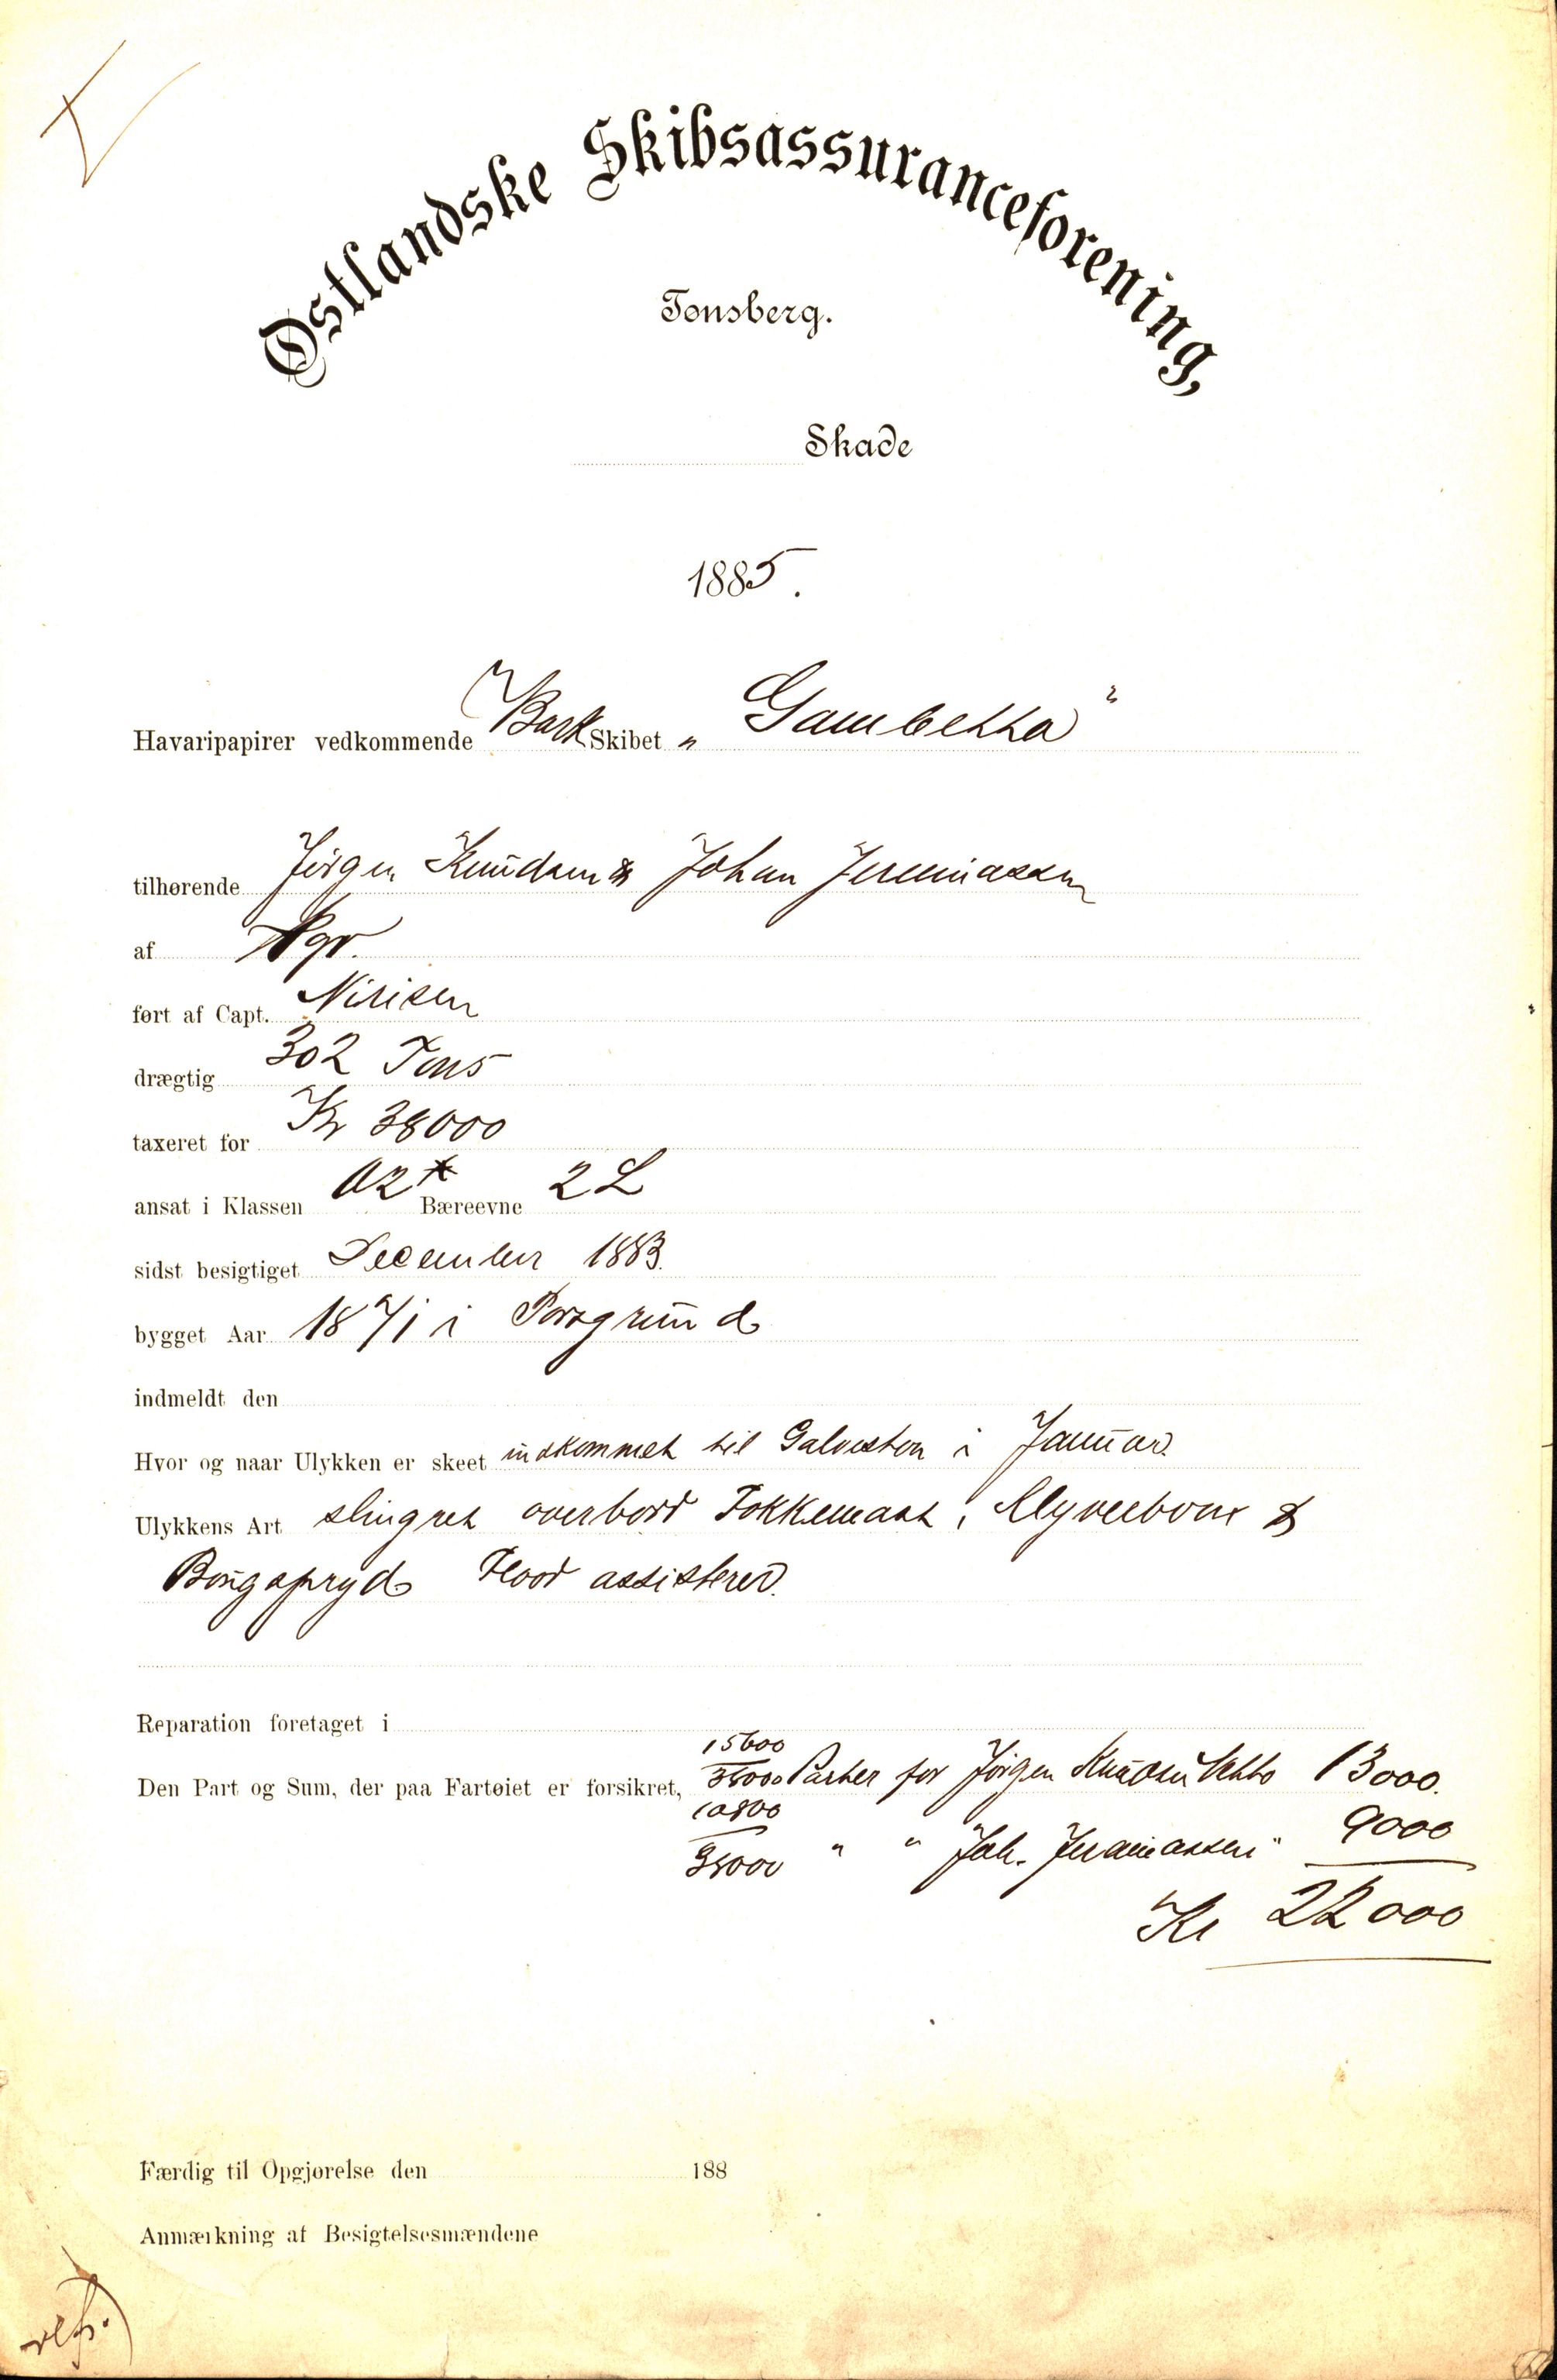 Østlandske Skibsassuranceforening,
Tønsberg.
Skade
1885.
Havaripapirer vedkommende Bark Skibet „Gambetta"
tilhørende Jørgen Knudsen & Johan Jeremiassen
af Pgr.
ført af Capt. Nilsen
drægtig 302 Tons
taxeret for Kr 38000
ansat i Klassen A2* Bæreevne 2 L
sidst besigtiget December 1883.
bygget Aar 1871 i Porsgrund
indmeldt den
Hvor og naar Ulykken er skeet indkommet til Galveston i Januar.
Ulykkens Art slingret overbord Fokkemast, Klyverbom &
Bougspryd assisteret.
Reparation foretaget i
15600
Den Part og Sum, der paa Fartøiet er forsikret, 38000 Parter for Jørgen Knudsen 13000.
10800
38000 " " Joh. Jeremiassen " 9000
Kr 22000
Færdig til Opgjørelse den 188
Anmærkning af Besigtelsesmændene